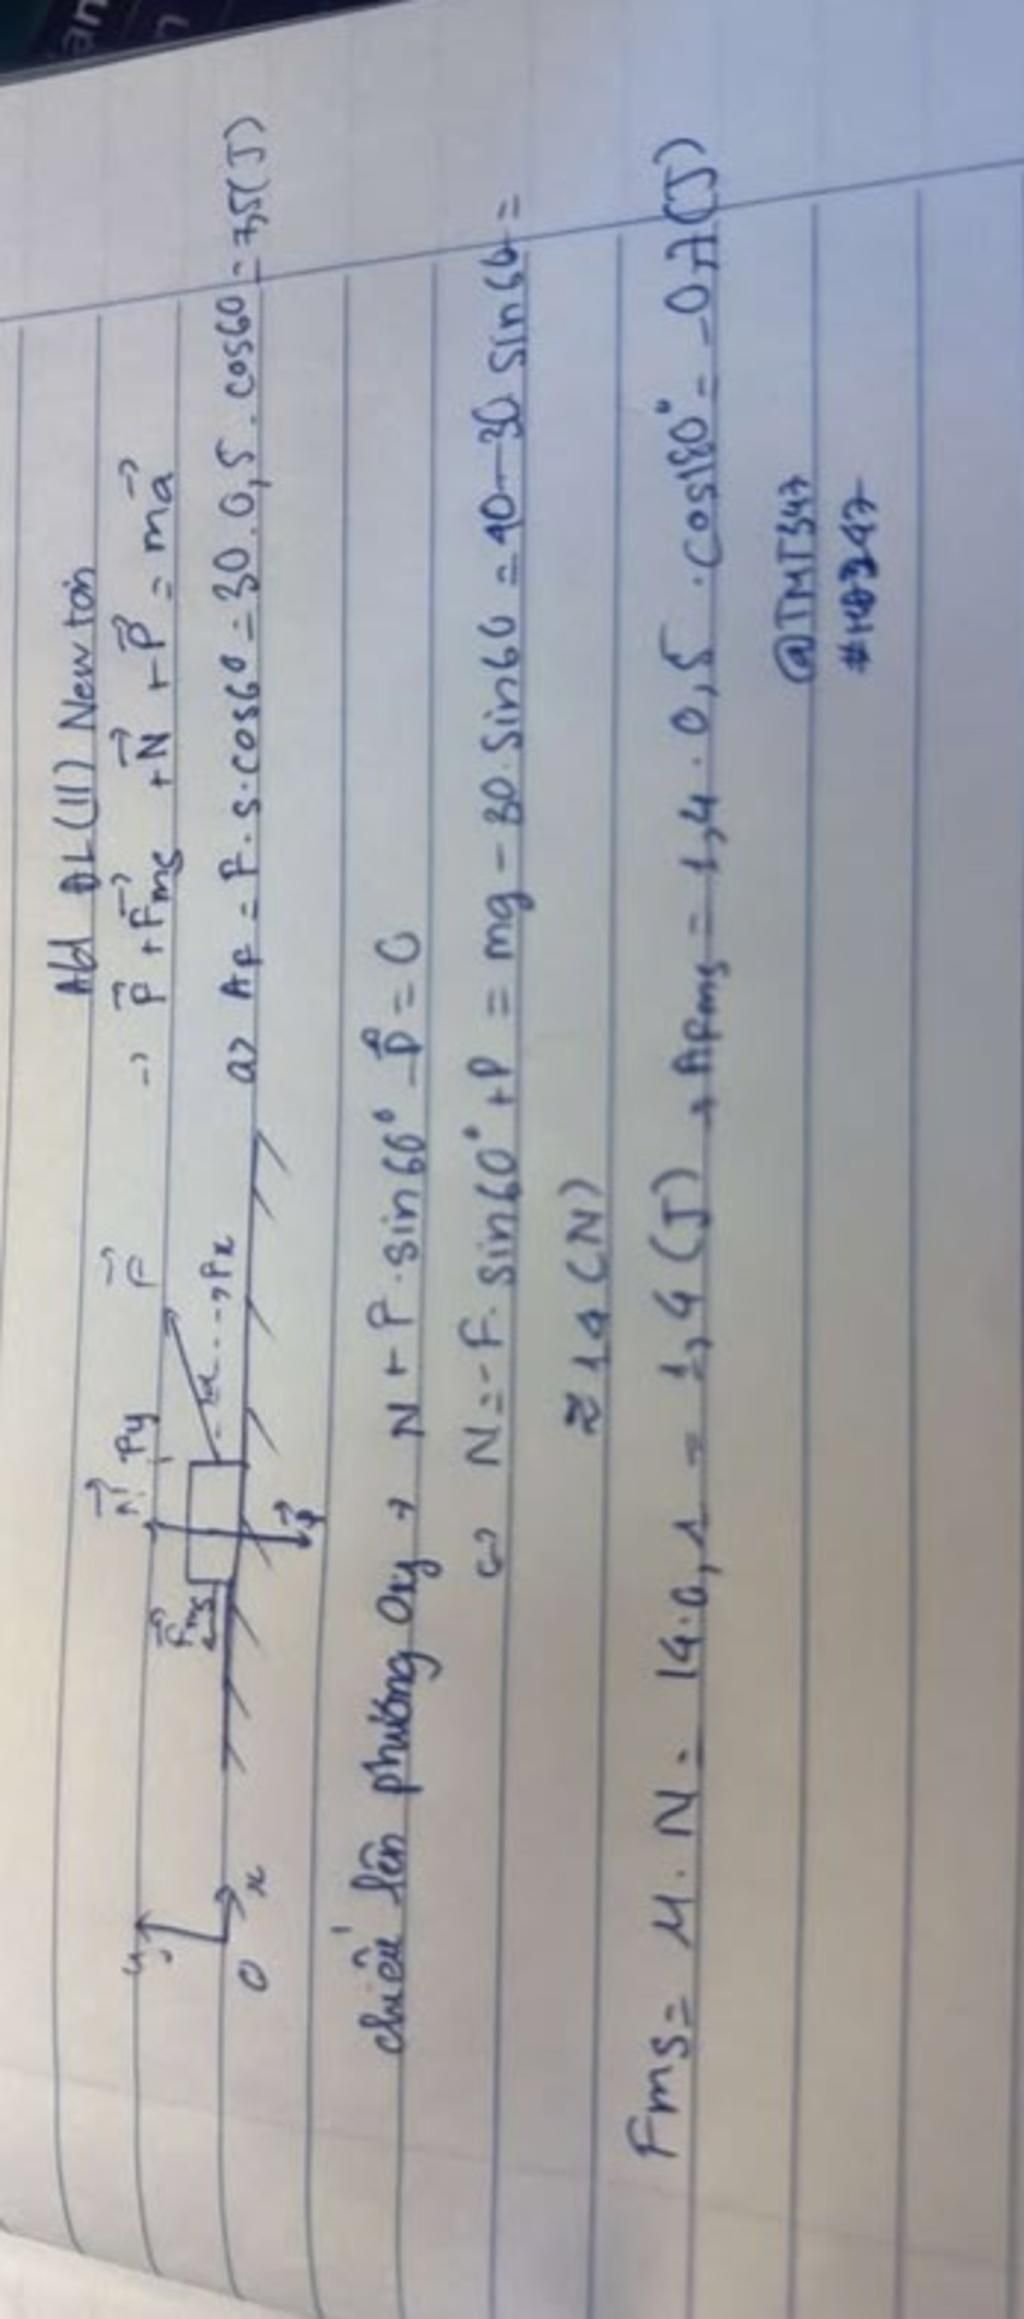 Abd ĐL (II) Newton
→ F⃗ + F⃗ms + N⃗ + P⃗ = ma⃗
N⃗ Fy F⃗
F⃗ms α Fx
P⃗
y O x
a> AF = F.s.cos60 = 30.0,5.cos60 = 7,5(J)
chiếu lên phương Oy → N + F.sin60° - P = 0
⇔ N = -F.sin60° + P = mg - 30.sin60 = 40 - 30 sin60 =
≈ 14 (N)
Fms = μ.N = 14.0,1 = 1,4 (J) → AFms = 1,4.0,5.cos180° = -0,7(J)
@TMT347